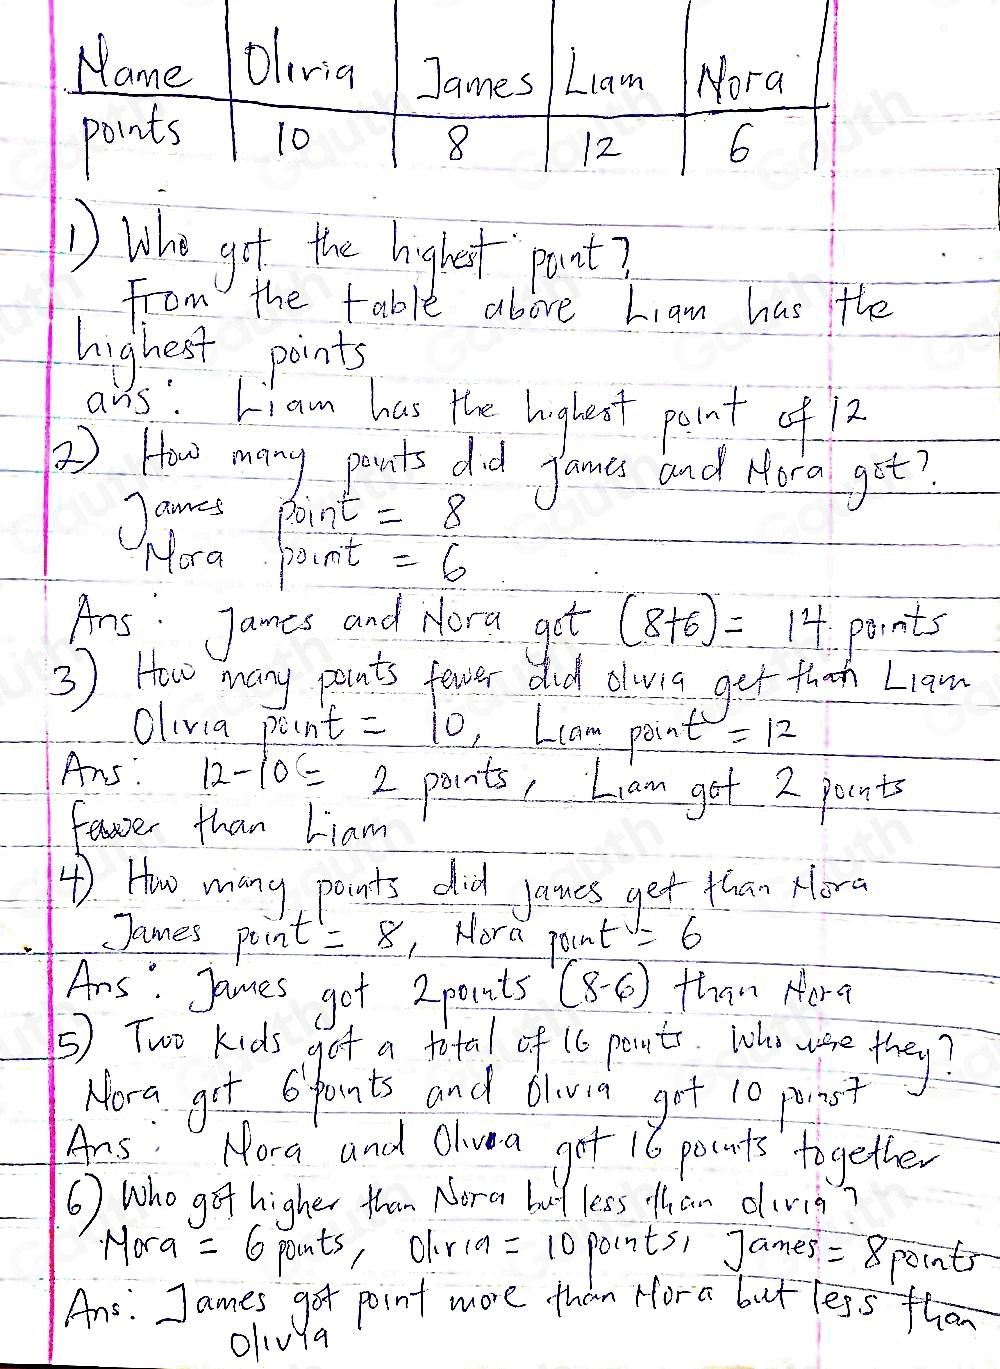 Name Olivia James Liam Nora
points 10 8 12 6
1) Who got the highest point?
From the table above Liam has the
highest points
ans: Liam has the highest point of 12
2) How many points did james and Nora got?
James point = 8
Nora point = 6
Ans: James and Nora got (8+6) = 14 points
3) How many points fewer did olivia get than Liam
Olivia point = 10, Liam point = 12
Ans: 12-10 = 2 points, Liam got 2 points
fewer than Liam
4) How many points did james get than Nora
James point = 8, Nora point = 6
Ans: James got 2points (8-6) than Nora
5) Two kids got a total of 16 points. Who were they?
Nora got 6 points and Olivia got 10 poinst
Ans: Nora and Olivia got 16 points together
6) Who got higher than Nora but less than olivia?
Nora = 6 points, Olivia = 10 points, James = 8 points
Ans: James got point more than Nora but less than
Olivia